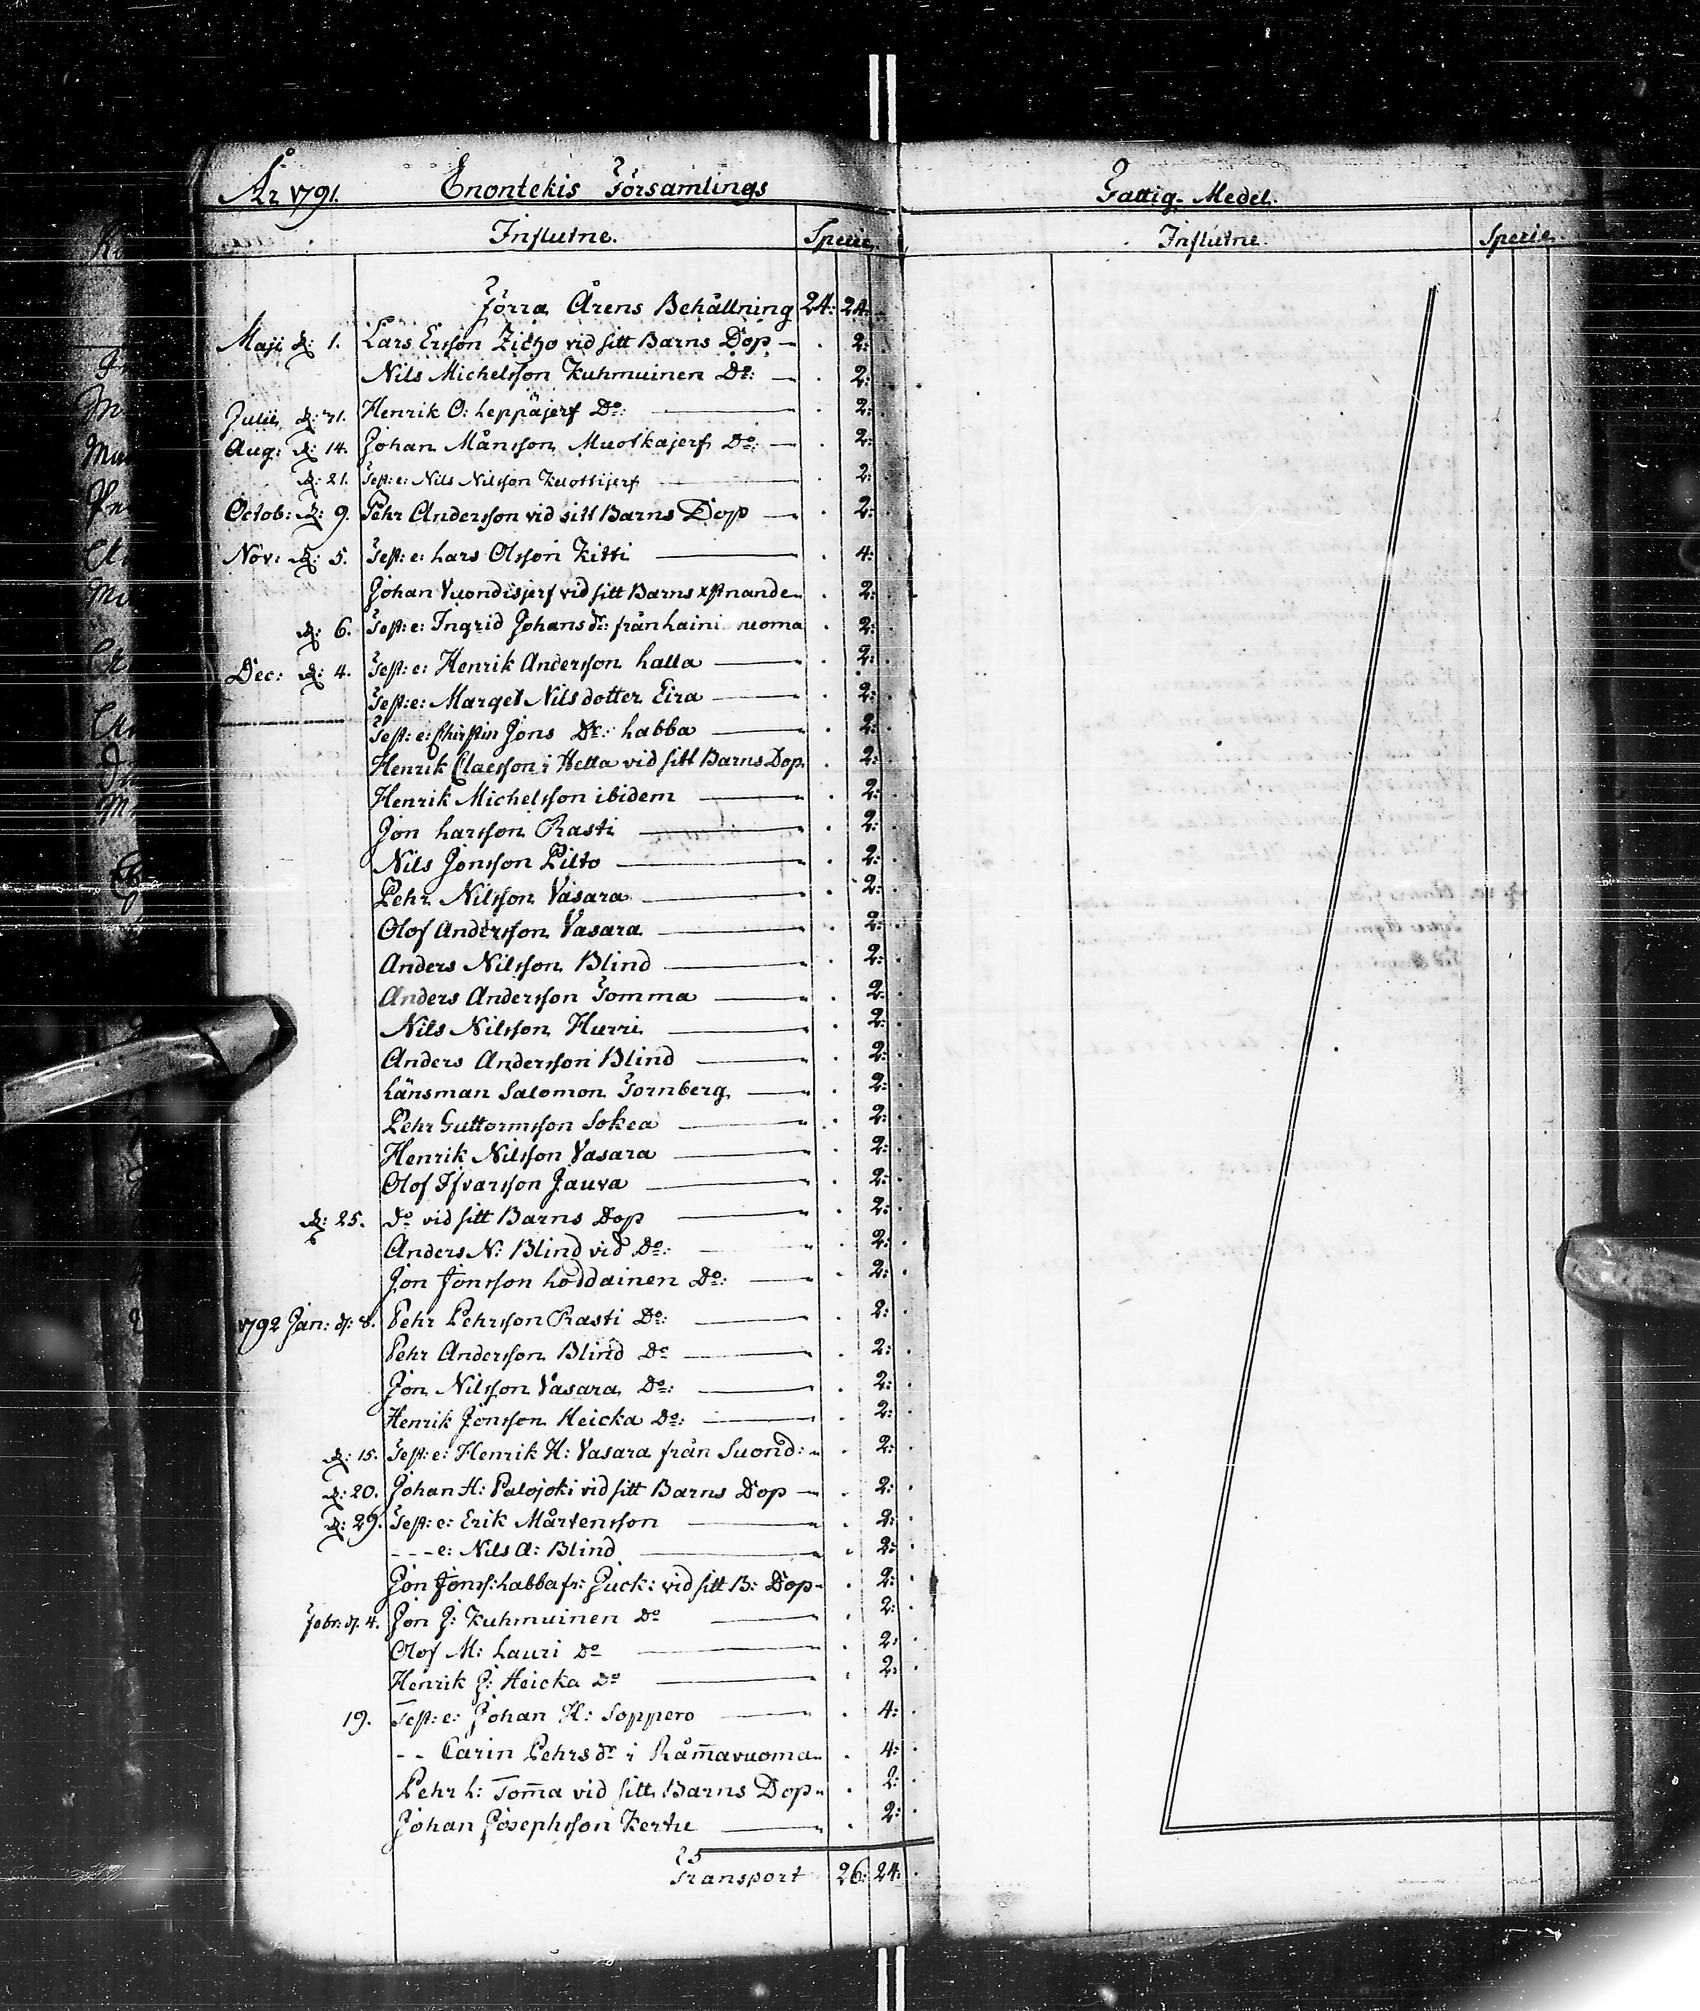 År 1791. Enontekis Församlings
Influtne. Specie
Förra Årens Behållning 24: 24.
Maji d: 1. Lars Ersson Zitzo vid sitt Barns Dop 2:
Nils Michelsson Kuhmuinen Do: 2:
Julii d: 31. Henrik O: Leppäjerf Do: 2:
Aug: d: 14. Johan Månsson Muotkajerf Do: 2:
d: 21. Test: e: Nils Nilsson Kuottijerf 2:
Octob: d: 9. Pehr Andersson vid sitt Barns Dop 2:
Nov: d: 5. Test: e: Lars Olsson Kitti 4:
Johan Vuondisjerf vid sitt Barns xstnande 2:
d: 6. Test: e: Ingrid Johans dr: från Lainiouoma 2:
Dec: d: 4. Test: e: Henrik Andersson Lalla 2:
Test: e: Marget Nilsdotter Eira 2:
Test: e: Christin Jons Dr: Labba 2:
Henrik Claesson i Hetta vid sitt Barns Dop 2:
Henrik Michelsson ibidem 2:
Jon Larsson Rasti 2:
Nils Jonsson Pilto 2:
Pehr Nilsson Vasara 2:
Olof Andersson Vasara 2:
Anders Nilsson Blind 2:
Anders Andersson Tomma 2:
Nils Nilsson Hurri 2:
Anders Andersson Blind 2:
Länsman Salomon Tornberg 2:
Pehr Guttormsson Sokea 2:
Henrik Nilsson Vasara 2:
Olof Ifvarsson Jauva 2:
d: 25. Do vid sitt Barns Dop 2:
Anders N: Blind vid Do: 2:
Jon Jonsson Loddainen Do: 2:
1792 Jan: d: 8. Pehr Pehrsson Rasti Do: 2:
Pehr Andersson Blind Do 2:
Jon Nilsson Vasara Do: 2:
Henrik Jonsson Heicka Do: 2:
d: 15. Test: e: Henrik H: Vasara från Suond: 2:
d: 20. Johan H: Palojoki vid sitt Barns Dop 2:
d: 29. Test: e: Erik Mårtensson 2:
- - - e: Nils A: Blind 2:
Jon Jonss: Labba fr: Juck: vid sitt B: Dop 2:
Febr: d. 4. Jon J: Kuhmuinen Do 2:
Olof M: Lauri Do 2:
Henrik J: Heicka Do 2:
19. Test: e: Johan H: Soppero 4:
- - Carin Pehrs dr i Råm̄avuoma 4:
Pehr L: Tom̄a vid sitt Barns Dop 2:
Johan Josephsson Kerttu 2:
Transport 26: 24:
Fattig-Medel.
Influtne. Specie.